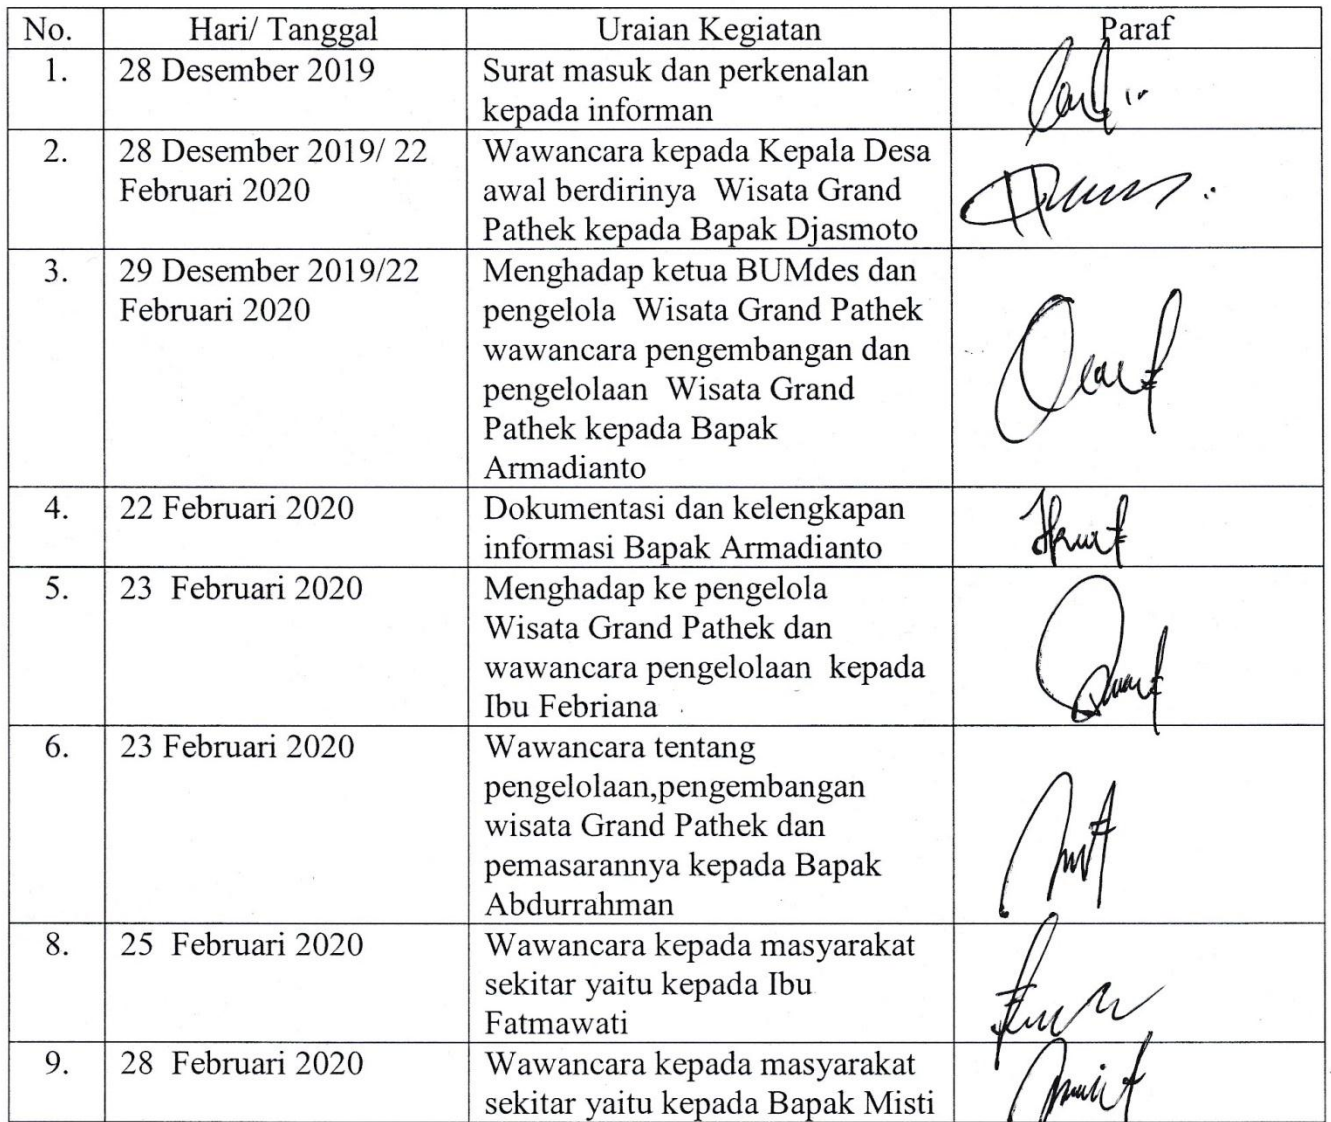 No. Hari/ Tanggal Uraian Kegiatan Paraf
1. 28 Desember 2019 Surat masuk dan perkenalan
kepada informan
2. 28 Desember 2019/ 22 Wawancara kepada Kepala Desa
Februari 2020 awal berdirinya Wisata Grand
Pathek kepada Bapak Djasmoto
3. 29 Desember 2019/22 Menghadap ketua BUMdes dan
Februari 2020 pengelola Wisata Grand Pathek
wawancara pengembangan dan
pengelolaan Wisata Grand
Pathek kepada Bapak
Armadianto
4. 22 Februari 2020 Dokumentasi dan kelengkapan
informasi Bapak Armadianto
5. 23 Februari 2020 Menghadap ke pengelola
Wisata Grand Pathek dan
wawancara pengelolaan kepada
Ibu Febriana
6. 23 Februari 2020 Wawancara tentang
pengelolaan,pengembangan
wisata Grand Pathek dan
pemasarannya kepada Bapak
Abdurrahman
8. 25 Februari 2020 Wawancara kepada masyarakat
sekitar yaitu kepada Ibu
Fatmawati
9. 28 Februari 2020 Wawancara kepada masyarakat
sekitar yaitu kepada Bapak Misti